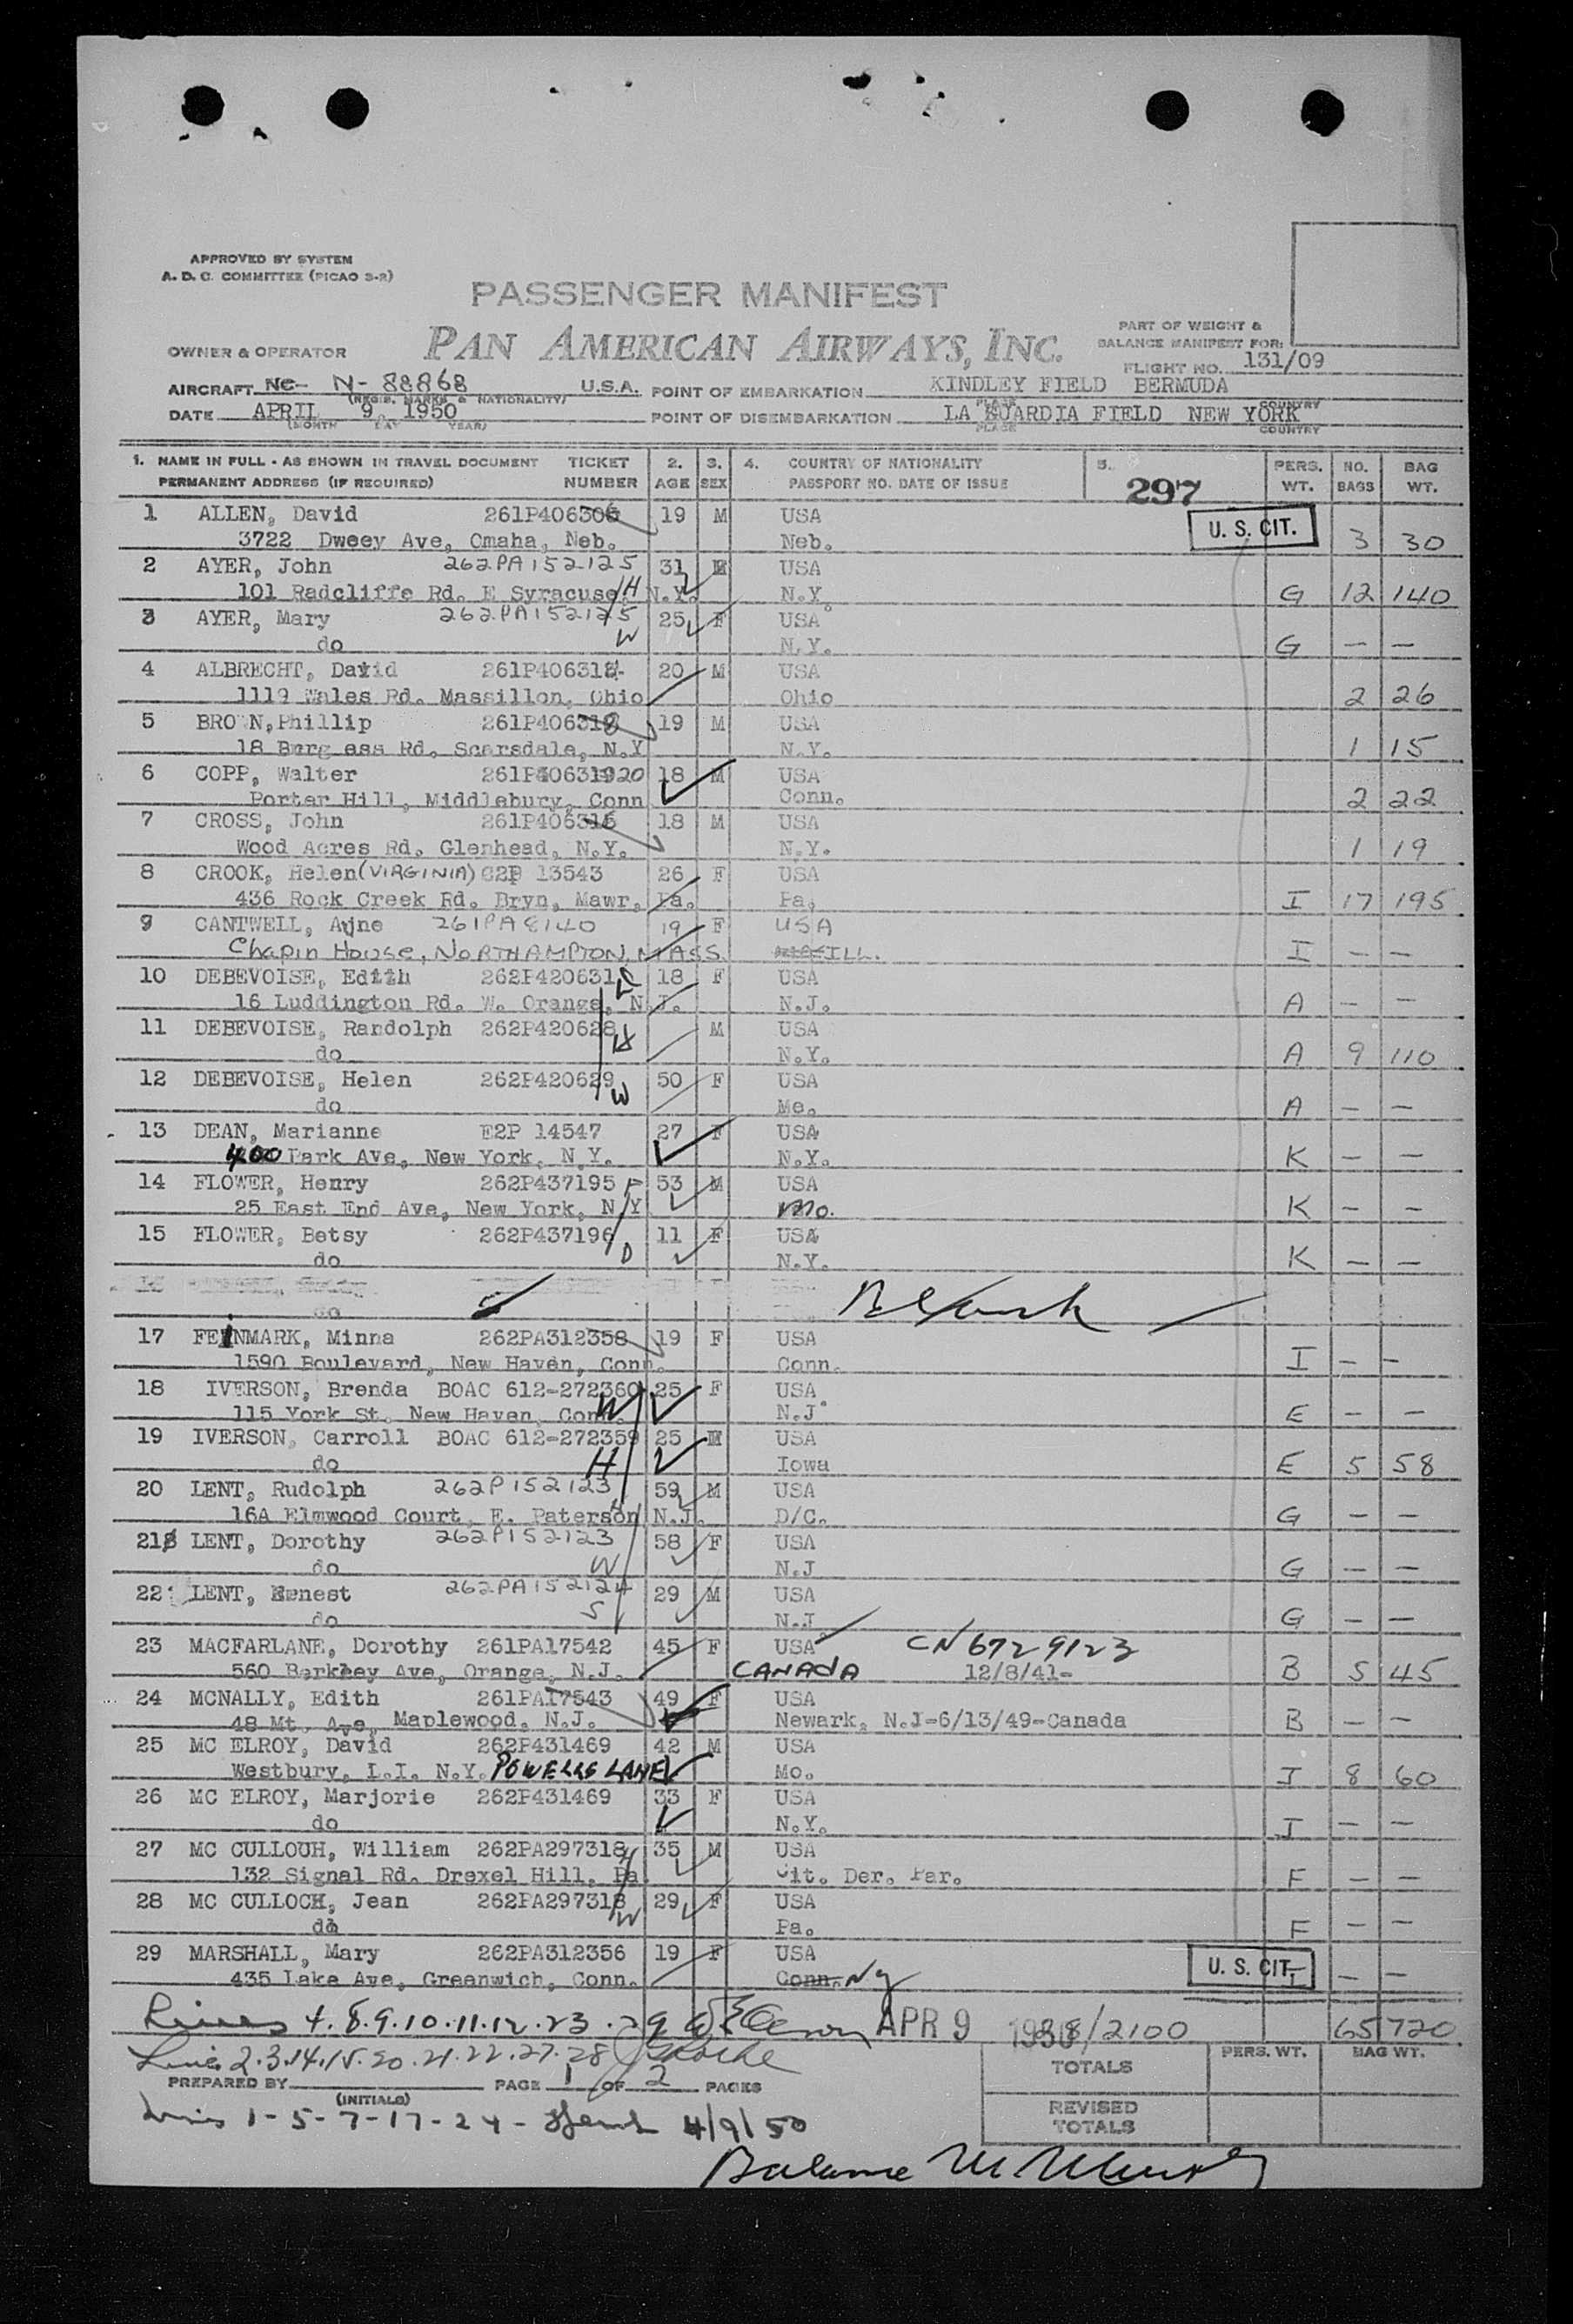 APPROVED BY SYSTEM
A. D. C. COMMITTEE (PICAO S-2)
PASSENGER MANIFEST
PAN AMERICAN AIRWAYS, INC.
PART OF WEIGHT &
BALANCE MANIFEST FOR:
OWNER & OPERATOR
FLIGHT NO. 131/09
AIRCRAFT NC- N-88868 U.S.A. POINT OF EMBARKATION KINDLEY FIELD BERMUDA
(REGIS. MARKS & NATIONALITY) PLACE COUNTRY
DATE APRIL 9, 1950 POINT OF DISEMBARKATION LA GUARDIA FIELD NEW YORK
(MONTH DAY YEAR) PLACE COUNTRY
1. NAME IN FULL - AS SHOWN IN TRAVEL DOCUMENT TICKET 2. 3. 4. COUNTRY OF NATIONALITY 5. PERS. NO. BAG
PERMANENT ADDRESS (IF REQUIRED) NUMBER AGE SEX PASSPORT NO. DATE OF ISSUE 297 WT. BAGS WT.
1 ALLEN, David 261P406306 19 M USA U. S. CIT.
3722 Dweey Ave, Omaha, Neb. Neb. 3 30
2 AYER, John 262PA152125 31 M USA
101 Radcliffe Rd. E Syracuse, H N.Y. N.Y. G 12 140
3 AYER, Mary 262PA152125 25 F USA
do W N.Y. G — —
4 ALBRECHT, David 261P406314 20 M USA
1119 Wales Rd. Massillon, Ohio Ohio 2 26
5 BROWN, Phillip 261P406318 19 M USA
18 Burgess Rd. Scarsdale, N.Y N.Y. 1 15
6 COPP, Walter 261P40631920 18 M USA
Porter Hill, Middlebury, Conn Conn. 2 22
7 CROSS, John 261P406316 18 M USA
Wood Acres Rd. Glenhead, N.Y. N.Y. 1 19
8 CROOK, Helen (VIRGINIA) C2P 13543 26 F USA
436 Rock Creek Rd. Bryn, Mawr, Pa. Pa. I 17 195
9 CANTWELL, Anne 261PA8140 19 F USA
Chapin House, NORTHAMPTON, MASS. ILL. I — —
10 DEBEVOISE, Edith 262P420631 18 F USA
16 Luddington Rd. W. Orange, N.J. N.J. A — —
11 DEBEVOISE, Randolph 262P420628 H M USA
do N.Y. A 9 110
12 DEBEVOISE, Helen 262P420629 W 50 F USA
do Me. A — —
13 DEAN, Marianne E2P 14547 27 F USA
400 Park Ave, New York, N.Y. N.Y. K — —
14 FLOWER, Henry 262P437195 F 53 M USA
25 East End Ave, New York, N.Y Mo. K — —
15 FLOWER, Betsy 262P437196 11 F USA
do D N.Y. K — —
do
17 FEINMARK, Minna 262PA312358 19 F USA
1590 Boulevard, New Haven, Conn. Conn. I — —
18 IVERSON, Brenda BOAC 612-272360 25 F USA
115 York St. New Haven, Conn. W N.J. E — —
19 IVERSON, Carroll BOAC 612-272359 25 M USA
do H Iowa E 5 58
20 LENT, Rudolph 262P152123 59 M USA
16A Elmwood Court, E. Paterson H N.J. D/C. G — —
21 LENT, Dorothy 262P152123 58 F USA
do W N.J G — —
22 LENT, Ernest 262PA152124 29 M USA
do S N.J. G — —
23 MACFARLANE, Dorothy 261PA17542 45 F USA CN 6729123
560 Berkeley Ave, Orange, N.J. CANADA 12/8/41- B 5 45
24 MCNALLY, Edith 261PA17543 49 F USA
48 Mt. Ave, Maplewood, N.J. Newark, N.J-6/13/49-Canada B — —
25 MC ELROY, David 262P431469 42 M USA
Westbury, L.I. N.Y. POWELLS LANE Mo. J 8 60
26 MC ELROY, Marjorie 262P431469 33 F USA
do N.Y. J — —
27 MC CULLOUH, William 262PA297318 H 35 M USA
132 Signal Rd. Drexel Hill, Pa Cit. Der. Par. F — —
28 MC CULLOCH, Jean 262PA297318 W 29 F USA
do Pa. F — —
29 MARSHALL, Mary 262PA312356 19 F USA U. S. CIT.
435 Lake Ave, Greenwich, Conn. Conn. Ny I — —
Lines 4.8.9.10.11.12.23.29 APR 9 /2100 65 720
Lines 2.3.14.15.20.21.22.27.28
TOTALS PERS. WT. BAG WT.
PREPARED BY PAGE 1 OF 2 PAGES
(INITIALS) REVISED
TOTALS
Lines 1-5-7-17-24- 4/9/50
Balance